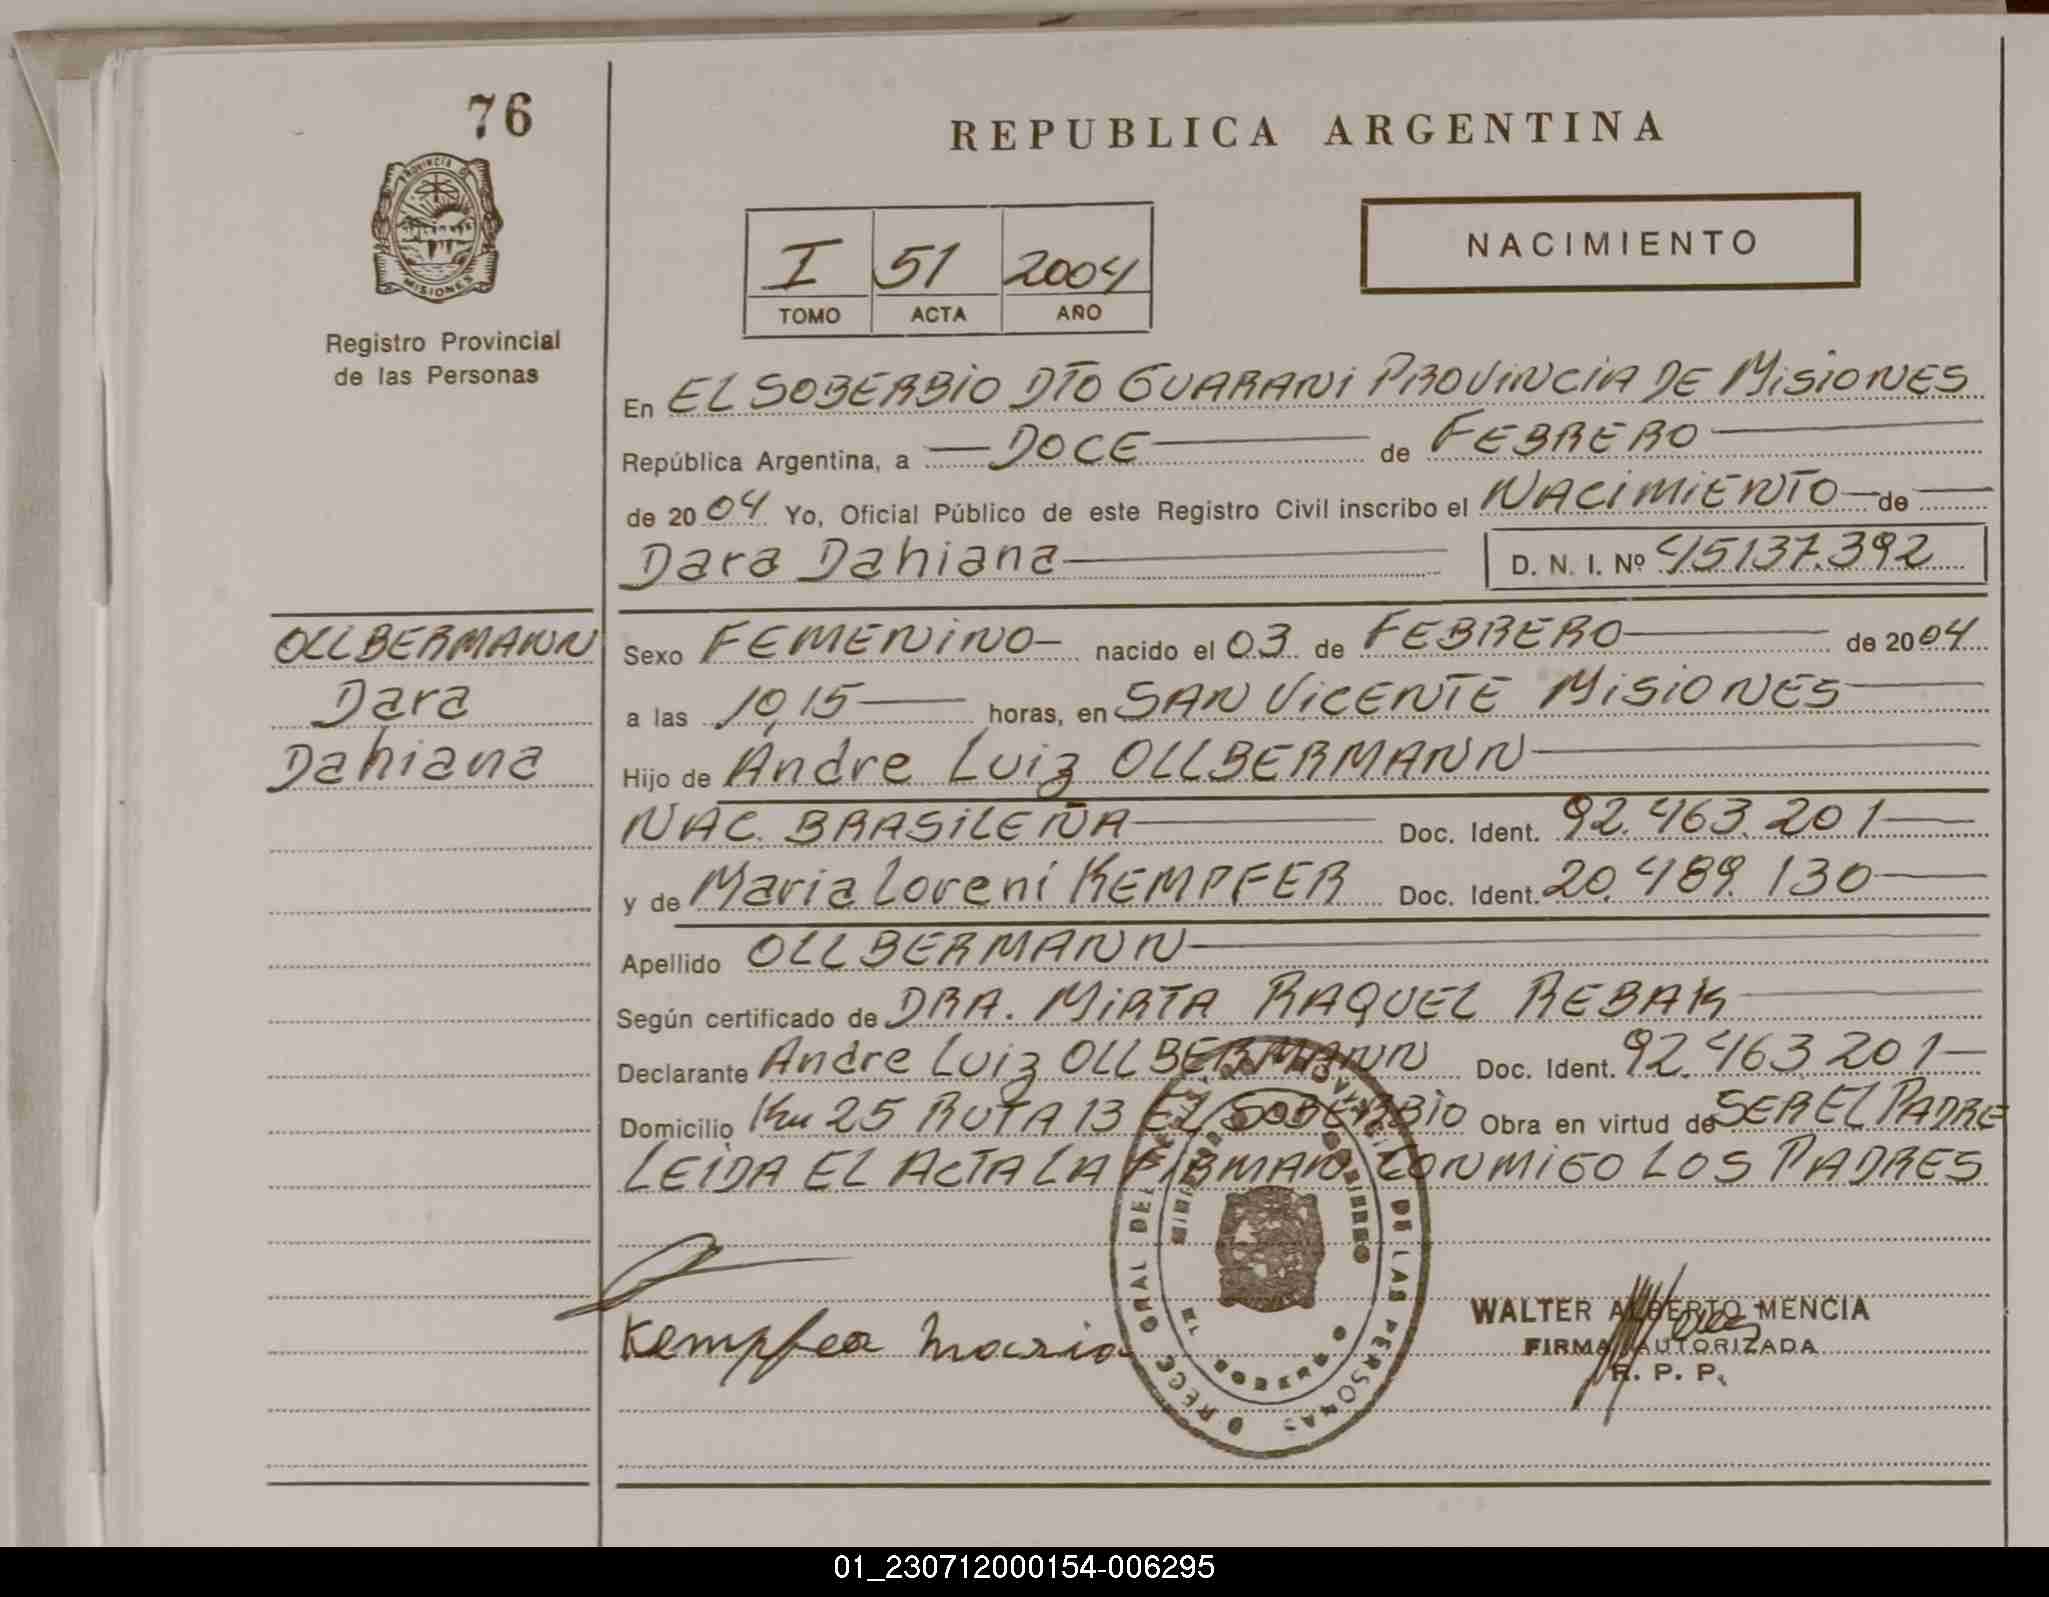 76
PROVINCIA DE
MISIONES
Registro Provincial
de las Personas
REPUBLICA ARGENTINA
NACIMIENTO
I 51 2004
TOMO ACTA AÑO
En EL SOBERBIO DTO GUARANI PROVINCIA DE MISIONES
República Argentina, a DOCE de FEBRERO
de 2004 Yo, Oficial Público de este Registro Civil inscribo el NACIMIENTO de
Dara Dahiana D. N. I. Nº 45137.392
OLLBERMANN
Dara
Dahiana
Sexo FEMENINO nacido el 03 de FEBRERO de 2004
a las 10,15 horas, en SAN VICENTE MISIONES
Hijo de Andre Luiz OLLBERMANN
NAC. BRASILEÑA Doc. Ident. 92.463.201
y de Maria Loreni KEMPFER Doc. Ident. 20.489.130
Apellido OLLBERMANN
Según certificado de DRA. MIRTA RAQUEL REBAK
Declarante Andre Luiz OLLBERMANN Doc. Ident. 92.463.201
Domicilio Km 25 RUTA 13 EL SOBERBIO Obra en virtud de SER EL PADRE
LEIDA EL ACTA LA FIRMAN CONMIGO LOS PADRES
Kempfer Maria
DE LAS PERSONAS
EL SOBERBIO
WALTER ALBERTO MENCIA
FIRMA AUTORIZADA
R. P. P.
01_230712000154-006295